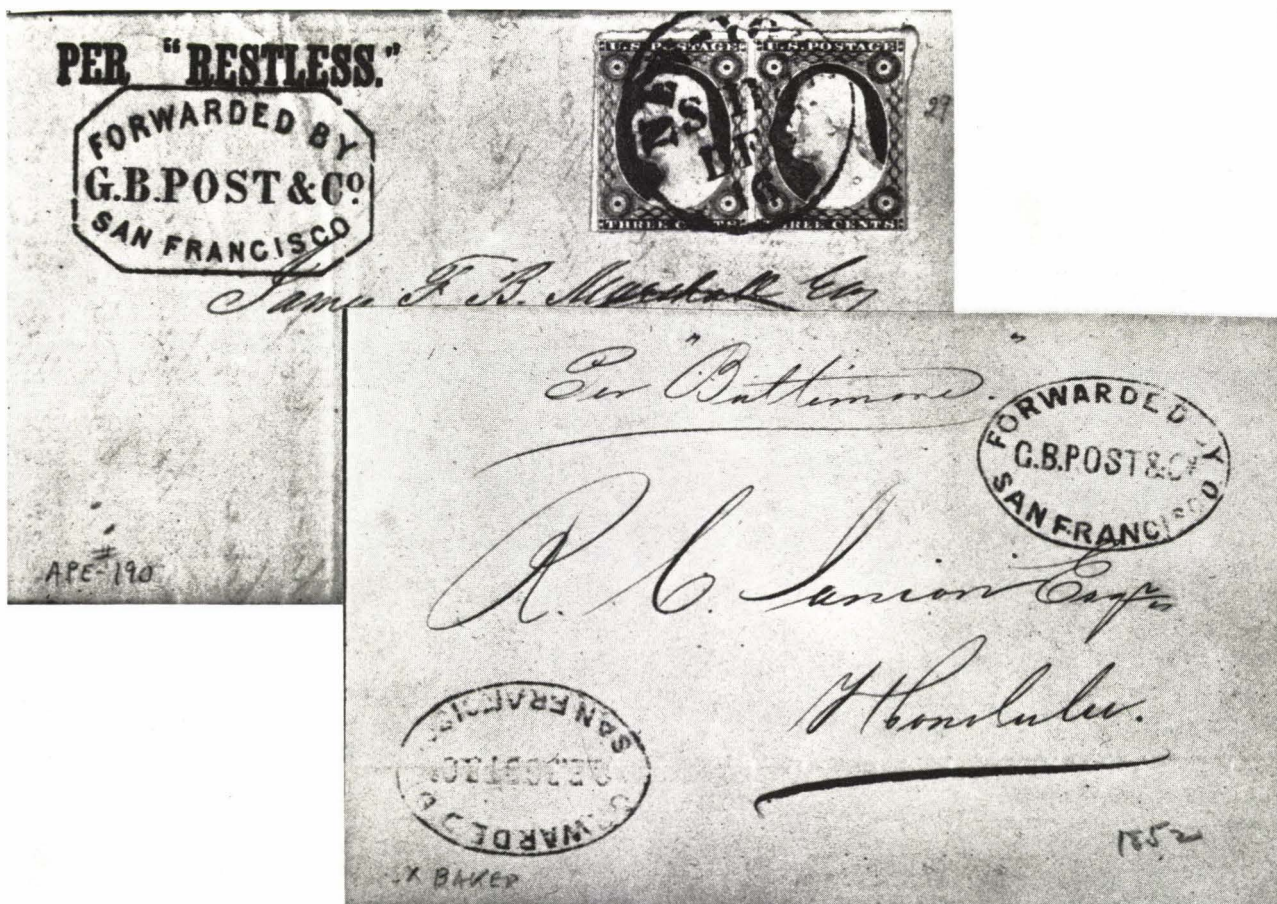 PER "RESTLESS."
FORWARDED BY
G.B.POST & Cº.
SAN FRANCISCO
U.S. POSTAGE
U.S. POSTAGE
THREE CENTS
THREE CENTS
29
James F. B. Marshall Esq
APE-190
Per "Baltimore".
FORWARDED BY
G.B.POST & Cº
SAN FRANCISCO
R. C. Janion Esqre
Honolulu.
FORWARDED B
POST & Cº
SAN FRANCIS
1852
X BAKER